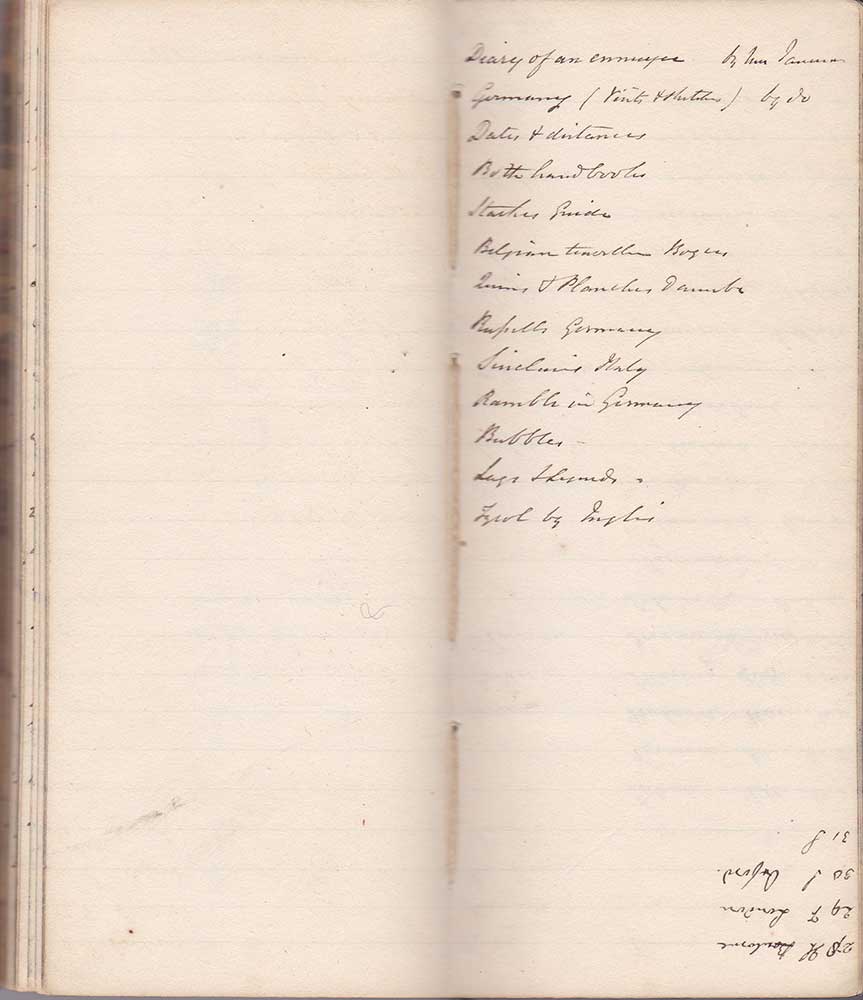 Diary of an ennuyee by Mrs Jameson
Germany (Visits & sketches) by do
Dates & distances
Both handbooks
Starkes Guide
Belgian traveller Boyces
Quins & Planches Danube
Russells Germany
Sinclairs Italy
Ramble in Germany
Bubbles -
Lays & Legends -
Tyrol by Inglis
28 H Boulogne
29 F London
30 S Oxford.
31 S